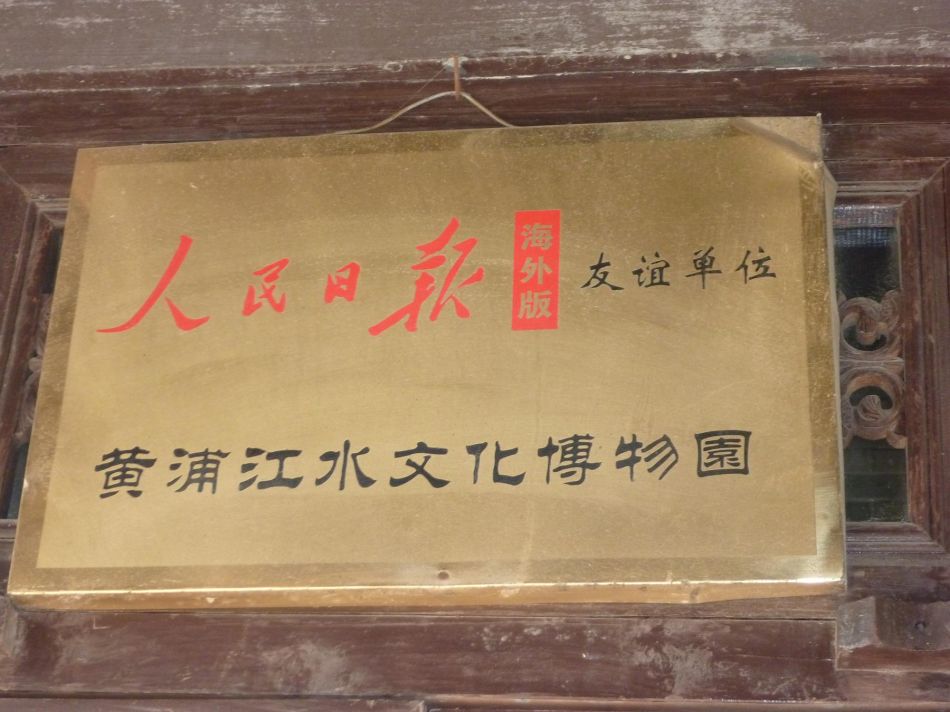 人民日报 海外版 友谊单位
黄浦江水文化博物園